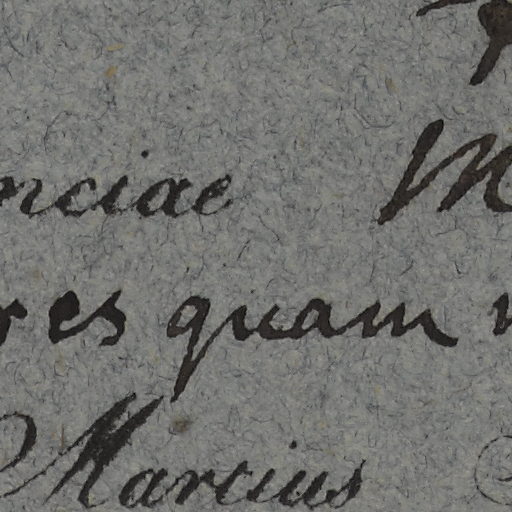 nciae M
res quam
Marcius